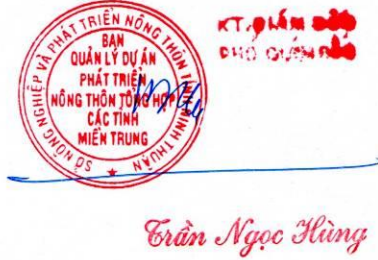 SỞ NÔNG NGHIỆP VÀ PHÁT TRIỂN NÔNG THÔN TỈNH NINH THUẬN
BAN
QUẢN LÝ DỰ ÁN
PHÁT TRIỂN
NÔNG THÔN TỔNG HỢP
CÁC TỈNH
MIỀN TRUNG
KT. GIÁM ĐỐC
PHÓ GIÁM ĐỐC
Trần Ngọc Hùng